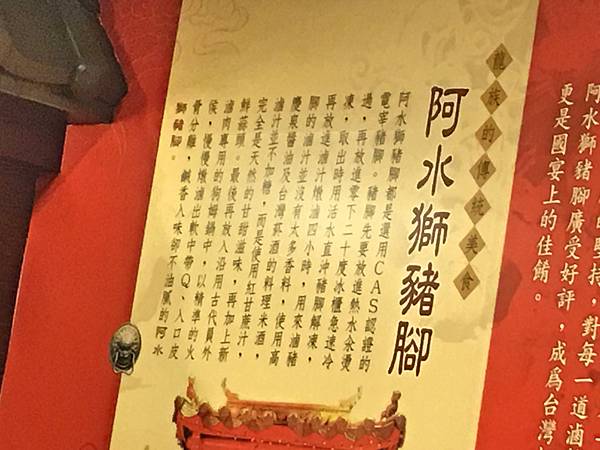 阿水獅豬
的堅持，對每一道滷
豬腳廣受好評，成為台灣
更是國宴上的佳餚。
龍族的傳統美食
阿水獅豬腳
阿水獅豬腳都是選用CAS認證的
電宰豬腳。豬腳先要放進熱水汆燙
過，再放進零下二十度冰櫃急速冷
凍，取出時用活水直沖豬腳解凍，
再放進滷汁燉滷四小時，用來滷豬
腳的滷汁並沒有太多香料，使用高
慶泉醬油及台灣菸酒的料理米酒，
滷汁並不加糖，而是使用紅甘蔗汁，
完全是天然的甘甜滋味，再加上新
鮮蒜頭。最後再放入沿用古代員外
滷肉專用的狗母鍋中，以精準的火
侯，慢慢燉滷出軟中帶Q、入口皮
骨分離，鹹香入味卻不油膩的阿水
獅豬腳。